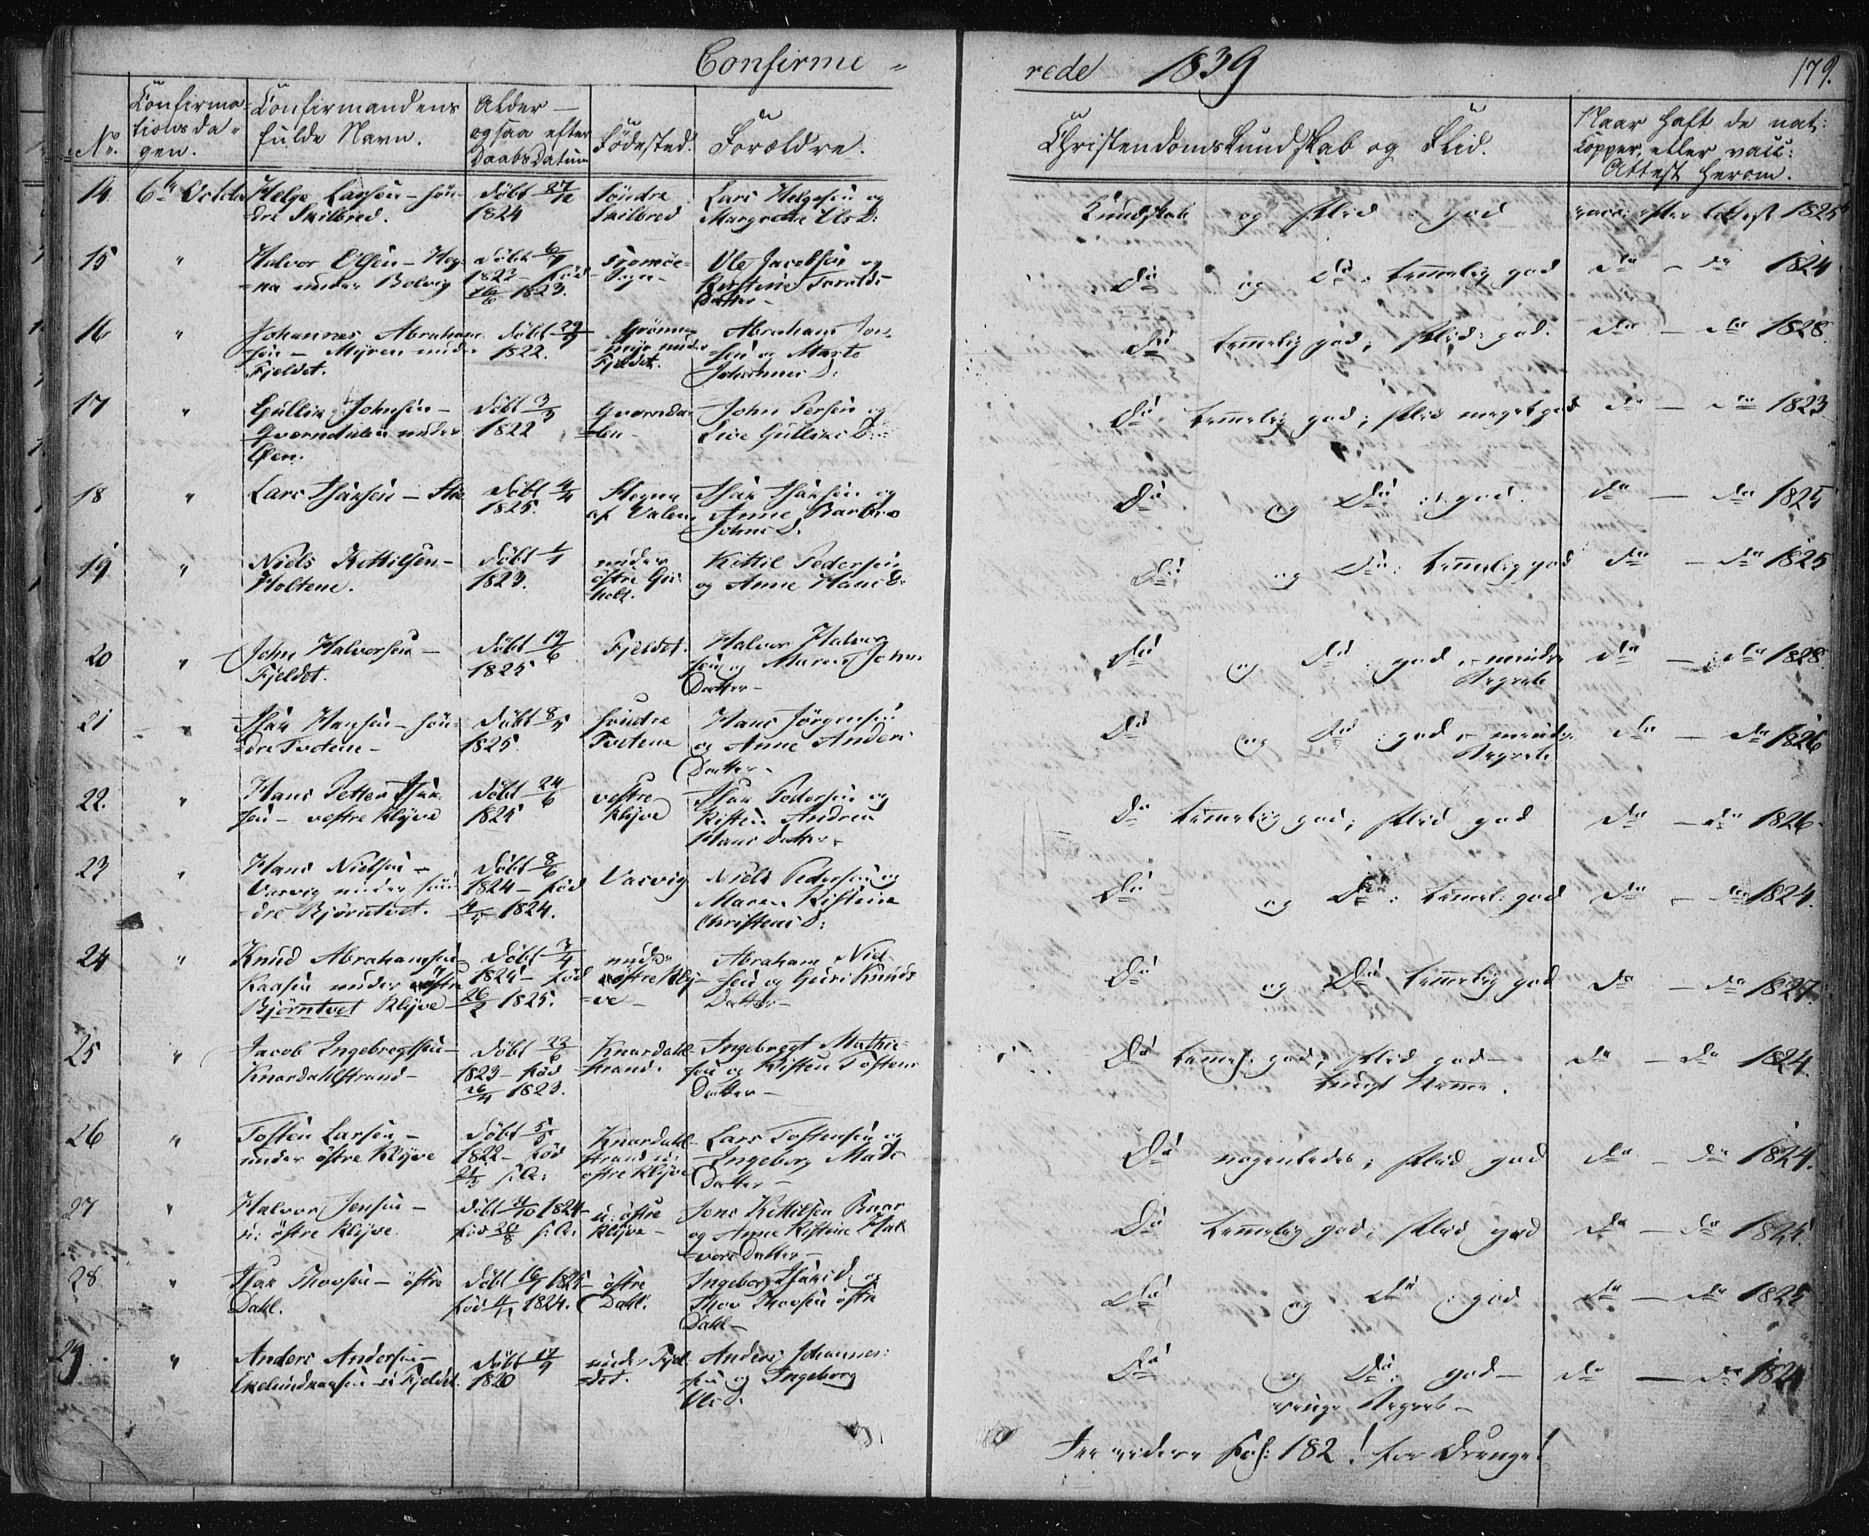 Confirme =
rede 1839 179.
No. Confirma-
tionsda-
gen. Confirmandens
fulde Navn. Alder
ogsaa efter
Daabsdatum Fødested. Forældre. Christendomskundskab og Flid. Naar haft de nat:
Kopper, eller vacc:
Attest herom.
14 6te Octobr Helge Larsen – søn-
dre Skilbred. døbt 27/12
1824 Søndre
Skilbred Lars Helgesen og
Margrethe Ols D: Kundskab og Flid: god vacc: efter Attest 1825
15 " Halvor Olsen – Heg-
na under Bolvig døbt 6/7
1823 – fød
16/6 1823. Ole Jacobsen og
Kirstine Taralds
Datter – Do og Do: temmelig god do – do 1824
16 " Johannes Abraham-
sen – Myren under
Fjeldet. døbt 29/9
1822. Grønne-
myr under
Fjeldet. Abraham Jon-
sen og Marte
Johannes D: Do temmelig god; Flid: god. do – do 1828.
17 " Gullik Johnsen –
Qværndalen under
Øen. døbt 3/3
1822 Qværnda-
len – John Persen og
Live Gulliks D: Do temmelig god; Flid meget god do – do 1823
18 " Lars Isaksen – døbt 4/4
1825. Stegna
af Valen Isak Isaksen og
Anne Barbro
Johns D. Do og Do: god. do – do 1825
19 " Niels Kittilsen –
Holtene. døbt 1/1
1823. under
østre
holt. Kittil Pedersen
og Anne Hans D: Do og Do: temmelig god do – do 1825
20 " John Halvorsen –
Fjeldet. døbt 19/6
1825 Fjeldet. Halvor Halvor-
sen og Maren Johns
Datter – Do og Do: god – mindre
Begreb do – do 1828
21 " Isak Hansen – søn-
dre Tvetene – døbt 8/5
1825. søndre
Tvetene Hans Jørgensen
og Anne Anders
Datter – Do og Do: god – mindre
Begreb do – do 1826
22. " Hans Petter Isak-
sen – vestre Klyve døbt 24/6
1825 vestre
Klyve Isak Pedersen og
Kisten Andrea
Hans Datter. Do temmelig god; Flid god do – do 1826.
23 " Hans Nielsen –
Varvig under søn-
dre Bjørntvet. døbt 8/6
1824 – fød
4/5 1824. Varvig Niels Pedersen og
Maren Kistine
Christens D: Do og Do: temmel: god do – do 1824.
24 " Knud Abrahamsen
Kaasen under østre
Bjørntvet Klyve døbt 3/4
1825 – fød
26/2 1825. under
østre Kly-
ve – Abraham Niel-
sen og Guri Knuds
Datter – Do og Do temmelig god do – do 1827.
25 " Jacob Ingebregtsen –
Knardahlstrand – døbt 22/6
1823 – fød
26/4 1823. Knardahl-
strand. Ingebregt Mathie-
sen og Kisten Tostens
Datter – Do temel: god; Flid god –
do – do 1824.
26 " Tosten Larsen –
under østre Klyve døbt 5/5
1822 – fød
21/3 s: A: Knardahl-
strand u:
østre Klyve Lars Tostensen og
Ingeborg Mads
Datter – Do nogenledes; Flid god do – do 1824.
27 " Halvor Jensen –
u: østre Klyve. døbt 31/10 1824
fød 20/8 s: A: u: østre
Klyve – Jens Kittilsen Knar
og Anne Kistine Hal-
vors Datter – Do temmelig god; Flid god do – do 1825.
28 " Isak Thorsen – østre
Dahl. døbt 16/1 1825 –
fød 1824. østre
Dahl. Ingeborg Isaks D og
Thor Thorsen østre
Dahl – Do og Do: god do – do 1825
29 " Anders Andersen –
Ekelundkaasen u: Fjeldet. døbt 17/9
1820 under Fjel-
det. Anders Johannes-
sen og Ingeborg
Ols D. Do og Do: god –
svage Begreb. – do – do 1821
See videre Pag: 182! for Drenge!